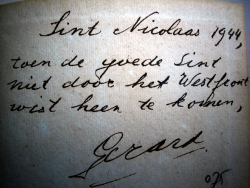 Sint Nicolaas 1944,
toen de goede Sint
niet door het Westfront
wist heen te komen,
Gerard.